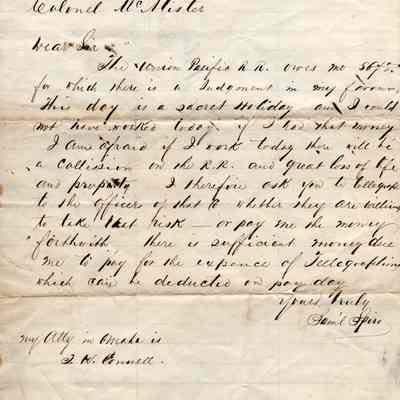 Colonel McAlister
Dear Sir
The Union Pacific R.R. owes me 567
for which there is a Judgment in my favour.
This day is a sacret Holiday and I would
not have worked today if I had that money
I am afraid if I work today there will be
a Collission on the R.R. and great loss of life
and property I therefore ask you to telegraph
to the officers of that Co whether they are willing
to take that risk — or pay me the money
forthwith. there is sufficient money due
me to pay for the expence of Tellegraphing
which can be deducted on pay day
Yours truly
Saml Spiro
my Atty in Omaha is
J. H. Connell.